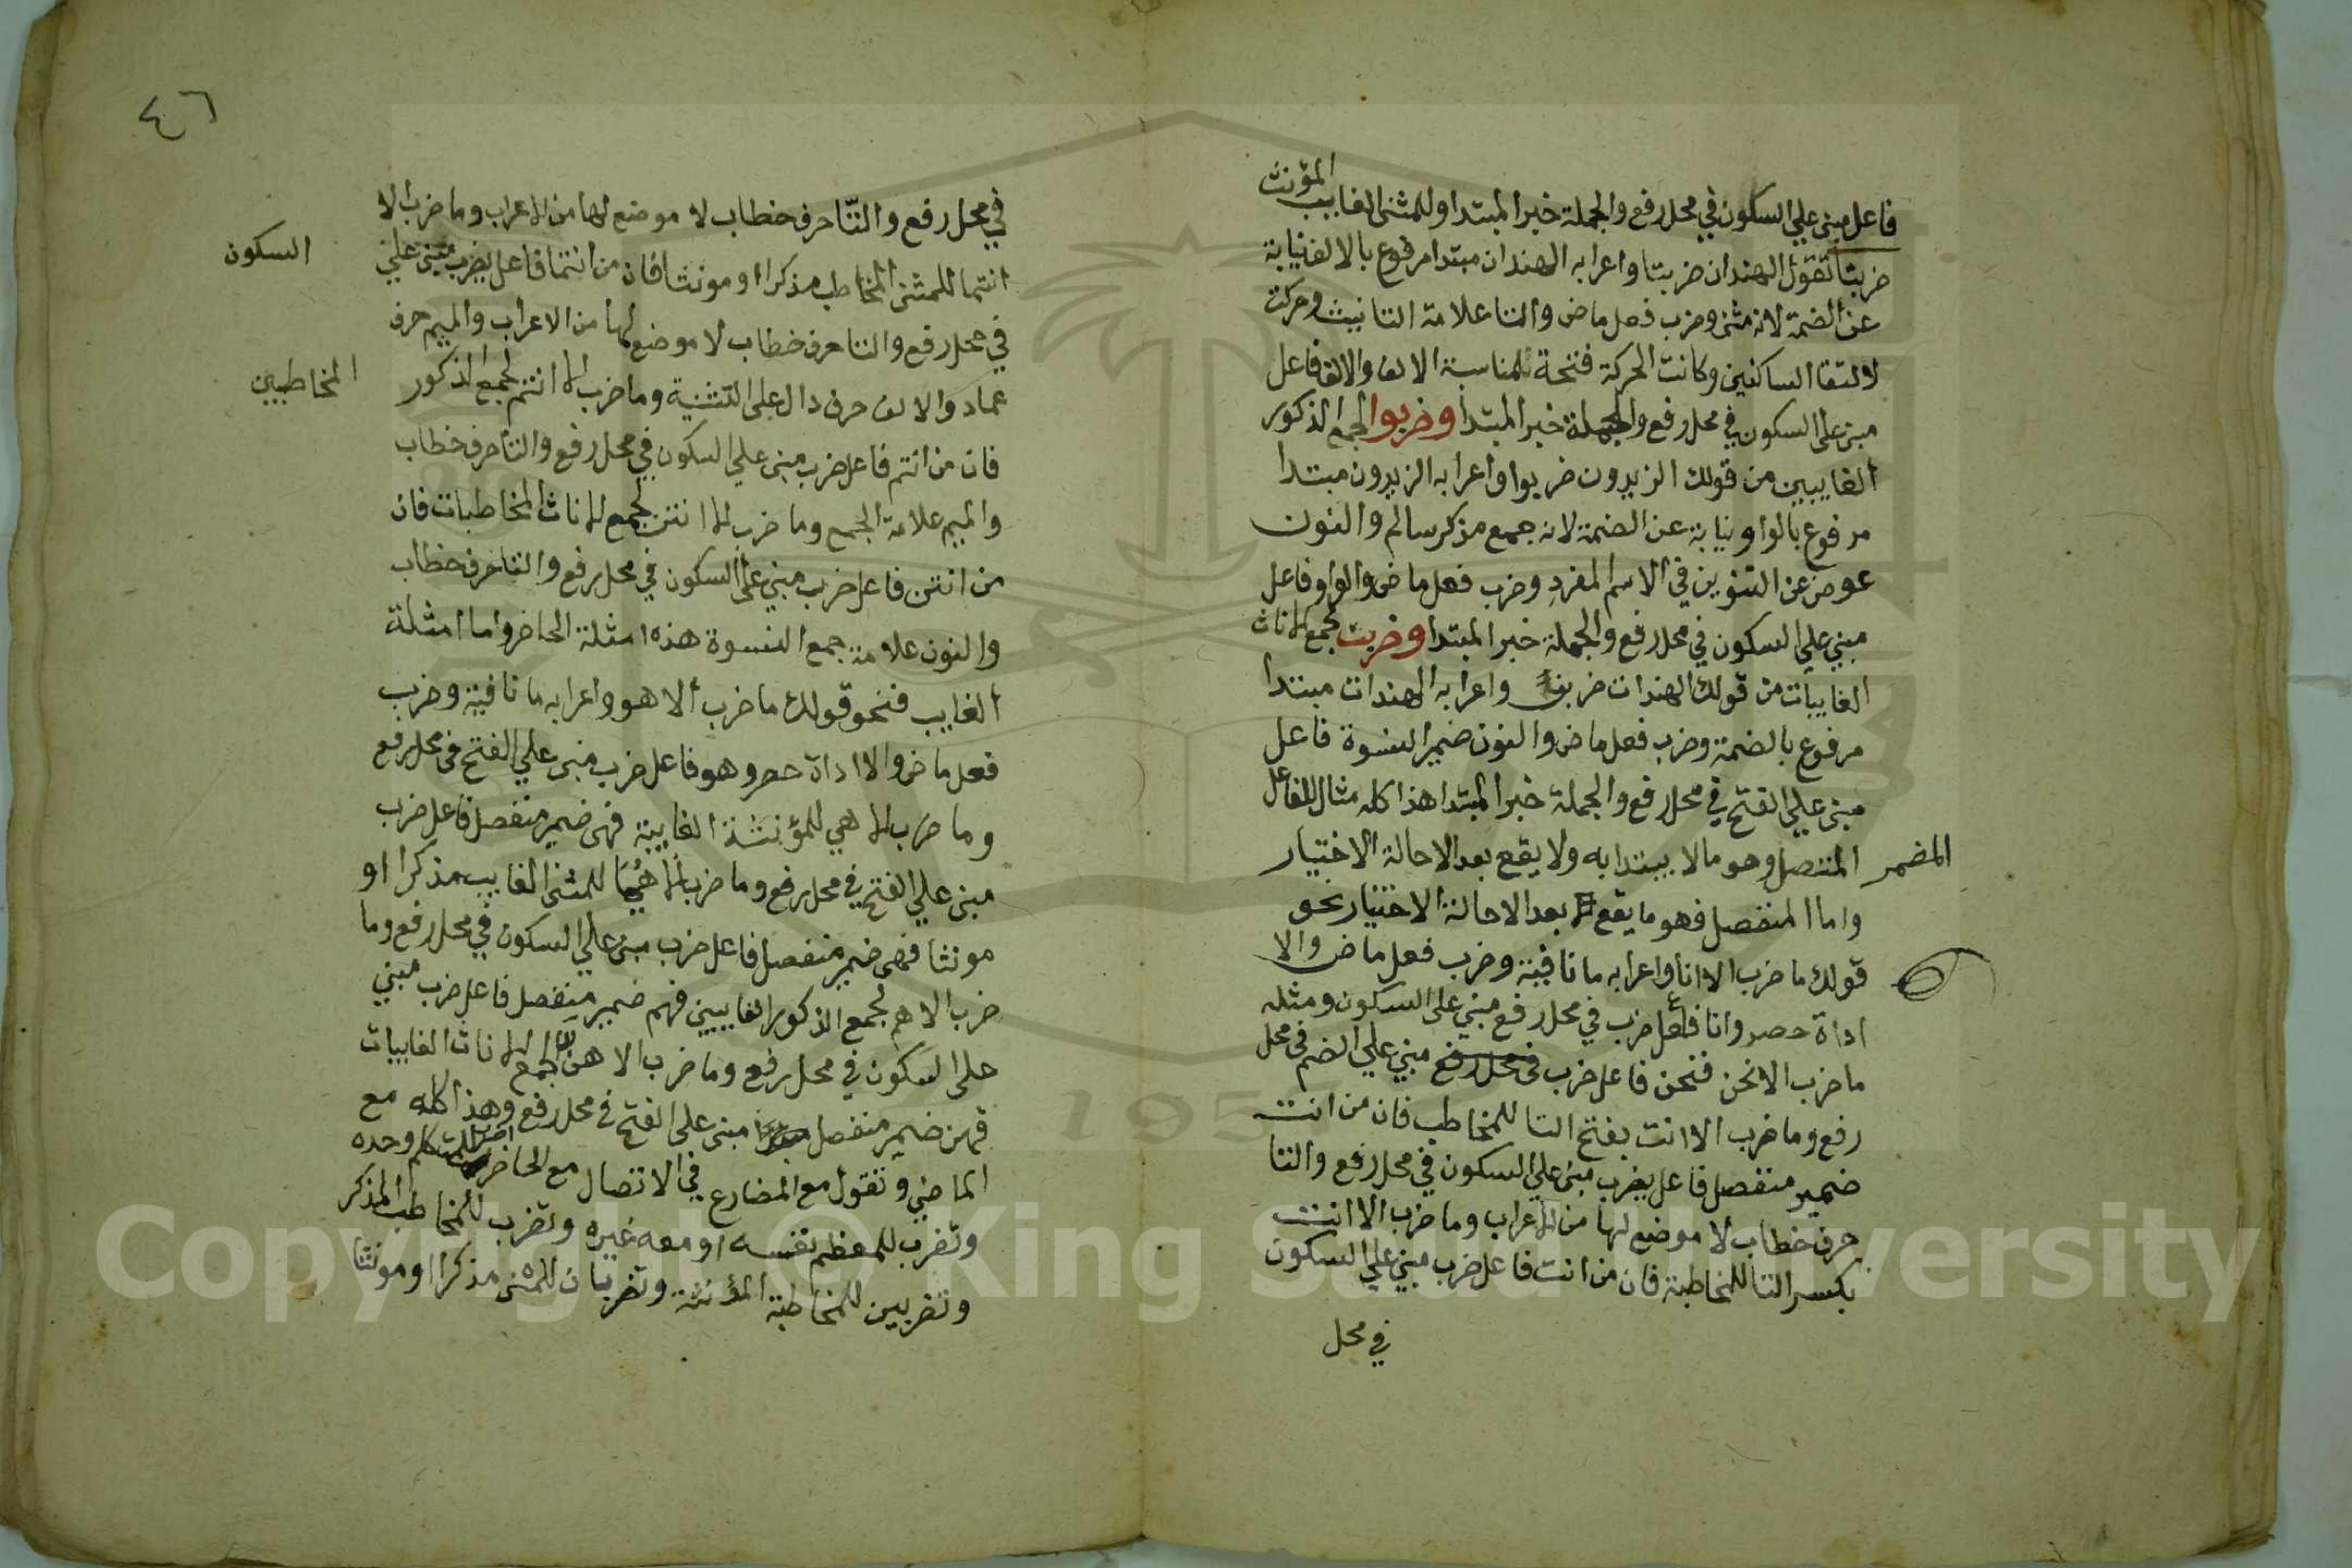 المؤنث
فاعل مبني علي السكون في محل رفع والجملة خبر المبتدا وللمثني الغايب
ضربتا تقول الهندان ضربتا واعرابه الهندان مبتدا مرفوع بالالف نيابة
عن الضمة لانه مثني وضرب فعل ماض والتا علامة التانيث وحركت
لالتقا الساكنين وكانت الحركة فتحة لمناسبة الالف والالف فاعل
مبني علي السكون في محل رفع والجملة خبر المبتدا وضربوا لجمع الذكور
الغايبين من قولك الزيدون ضربوا واعرابه الزيدون مبتدا
مرفوع بالواو نيابة عن الضمة لانه جمع مذكر سالم والنون
عوض عن التنوين في الاسم المفرد وضرب فعل ماض والواو فاعل
مبني علي السكون في محل رفع والجملة خبر المبتدا وضربن لجمع الاناث
الغايبات من قولك الهندات ضربن واعرابه الهندات مبتدا
مرفوع بالضمة وضرب فعل ماض والنون ضمير النسوة فاعل
مبني علي الفتح في محل رفع والجملة خبر المبتدا هذا كله مثال للفاعل
المضمر المتصل وهو مالا يبتدا به ولا يقع بعد الا حالة الاختيار
واما المنفصل فهو ما يقع بعد الا حالة الاختيار نحو
قولك ما ضرب الا انا واعرابه ما نافية وضرب فعل ماض والا
اداة حصر وانا فاعل ضرب في محل رفع مبني علي السكون ومثله
ما ضرب الا نحن فنحن فاعل ضرب في محل رفع مبني علي الضم في محل
رفع وما ضرب الا انت بفتح التا للمخاطب فان من انت
ضمير منفصل فاعل بضرب مبني علي السكون في محل رفع والتا
حرف خطاب لا موضع لها من الاعراب وما ضرب الا انت
بكسر التا للمخاطبة فان من انت فاعل ضرب مبني علي السكون
في محل
٤٦
في محل رفع والتّا حرف خطاب لا موضع لها من الاعراب وما ضرب الا
انتما للمثني المخاطب مذكرا او مونثا فان من انتما فاعل بضرب مبني علي
السكون
في محل رفع والتا حرف خطاب لا موضع لها من الاعراب والميم حرف
عماد والالف حرف دال علي التثنية وما ضرب الا انتم لجمع الذكور
المخاطبين
فان من انتم فاعل ضرب مبني علي السكون في محل رفع والتا حرف خطاب
والميم علامة الجمع وما ضرب الا انتن لجمع الاناث المخاطبات فان
من انتن فاعل ضرب مبني علي السكون في محل رفع والتا حرف خطاب
والنون علامة جمع النسوة هذه امثلة الحاضر واما امثلة
الغايب فنحو قولك ما ضرب الا هو واعرابه ما نافية وضرب
فعل ماض والا اداة حصر وهو فاعل ضرب مبني علي الفتح في محل رفع
وما ضرب الا هي للمؤنثة الغايبة فهي ضمير منفصل فاعل ضرب
مبني علي الفتح في محل رفع وما ضرب الا هُمَا للمثني الغايب مذكرا او
مونثا فهي ضمير منفصل فاعل ضرب مبني علي السكون في محل رفع وما
ضرب الا هم لجمع الذكور الغايبين فهم ضمير منفصل فاعل ضرب مبني
علي السكون في محل رفع وما ضرب الا هنَّ لجمع الاناث الغايبات
فهن ضمير منفصل مبني علي الفتح في محل رفع وهذا كله مع
الماضي وتقول مع المضارع في الاتصال مع الحاضر اضرب للمتكلم وحده
ونضرب للمعظم نفسه او معه غيره وتضرب للمخاطب المذكر
وتضربين للمخاطبة المؤنثة وتضربان للمثني مذكرا او مونثا
Copyright © King Saud University
1957